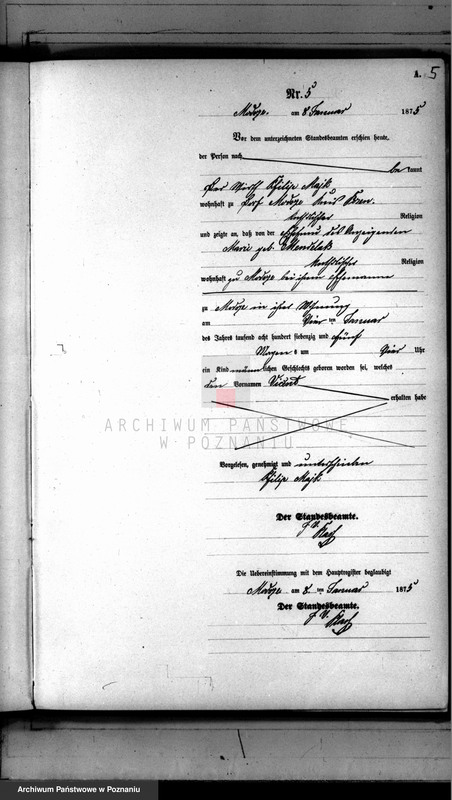 A. 5
Nr. 5
am 8 Januar 1875
Vor dem unterzeichneten Standesbeamten erschien heute,
der Person nach
be kannt
der Wirth Philipp Majk
wohnhaft zu Dorf
katholischer Religion
und zeigte an, daß von der Ehefrau des Anzeigenden
Marie geb.
katholischer Religion
wohnhaft zu bei ihrem Ehemanne
zu in ihrer Wohnung
am vier ten Januar
des Jahres tausend acht hundert siebenzig und fünf
Morgens um vier Uhr
ein Kind männlichen Geschlechts geboren worden sei, welches
den Vornamen Vicent
erhalten habe
ARCHIWUM PAŃSTWOWE
W POZNANIU
Vorgelesen, genehmigt und unterschrieben
Philipp Majk
Der Standesbeamte.
J. V.
Die Uebereinstimmung mit dem Hauptregister beglaubigt
am 8. ten Januar 1875
Der Standesbeamte.
J. V.
Archiwum Państwowe w Poznaniu